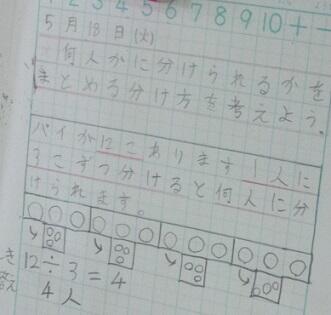 1 2 3 4 5 6 7 8 9 10 + -
5月18日(火)
何人かに分けられるかを
まとめる分け方を考えよう。
パイが12こあります1人に
3こずつ分けると何人に分
けられます。
き 12÷3=4
答 4人